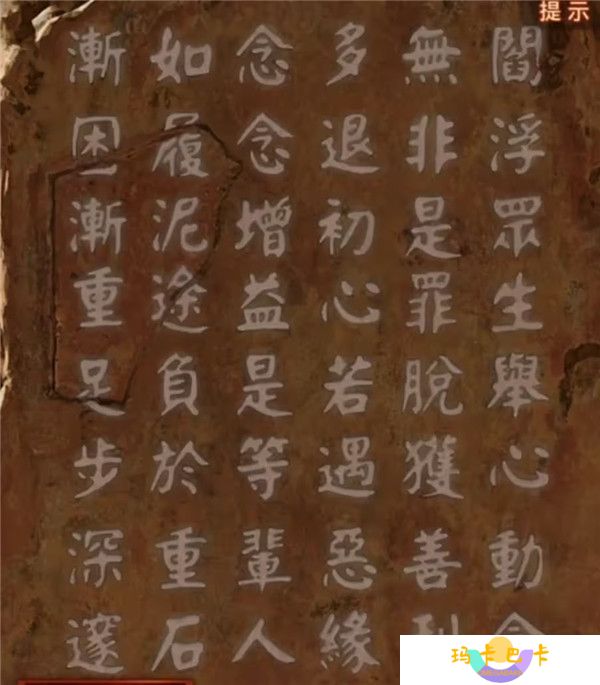 提示
閻浮眾生舉心動
無非是罪脫獲善
多退初心若遇惡緣
念念增益是等輩人
如履泥途負於重石
漸困漸重足步深邃
玛卡巴卡